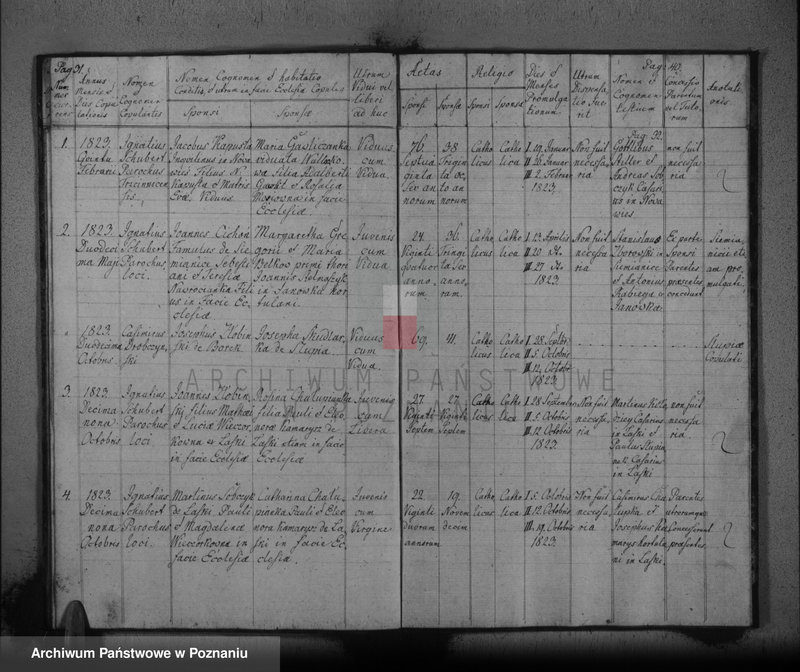 Pag 31.
Annus Mensis et Dies Copulationis
Nomen et Cognomen Copulantis
Nomen Cognomen et habitatio
Conditio, et utrum in facie Ecclesiæ Copulati
Sponsi
Sponsæ
Utrum Vidui vel liberi ad huc
Aetas
Sponsi
Sponsæ
Religio
Sponsi
Sponsæ
Dies et Mensis Promulgationum
Utrum Dispensatio fuerit
Nomen et Cognomen testium
Concessio Parentum vel Tutorum
Anotationis
1.
1823.
Quinta
Februarii
Ignatius
Schubert
Parochus
Jacobus Kapusta
Inquilinus in Nova
wies Filius
Kapusta et Matris
Eva Viduus
Maria Gawliczanka
viduata
wa filia Adalberti
Gawlet et Rosalia
in facie
Ecclesiæ
Viduus
cum
Vidua.
76.
Septua
ginta
Sex an
norum
38
Trigin
ta oc,
to an
norum
Catho
licus
Catho
lica
I. 19. Januar
II. 26. Januar
III. 2. Februar
1823.
Non fuit
necessa,
ria
Gottlieus
Andreas Sob
czyk Casari,
us in Nova
wies.
non fuit
necessa
ria
2.
1823
Duodeci
ma Maji
Ignatius
Schubert
Parochus
loci.
Joannes Cichoń
Famulus de Sie
mianice Sebesti
ani et Teresia
us in Facie Ec
clesiæ
Margaretha Gre
gorii et Maria
Belkow primi thori
in Janowka
tulani.
Juvenis
cum
Vidua
24.
Viginti
quatuor
anno,
rum
36.
Tringi
ta Sex
anno,
ram.
Catho
licus
Catho
lica
I. 13. Aprilis
II. 20
III. 27
1823.
Non fuit
necessa
ria
Stanislaus
Siemianice
et Antonius
Janowka
Ex parte
Sponsi
Parentes
præsentes
concedunt
Siemia,
nicie eti
am pro
mulgati.
1823.
Duodecima
Octobris
Casimirus
Josephus Kobin
ski de Borek
Josepha Skudlar,
ka de Słupia
Viduus
cum
Vidua.
69.
41.
Catho
licus
Catho
lica
I. 28. Septbr
II. 5. Octobris
III. 12. Octobr
1823.
Słupiæ
Copulati
3.
1823.
Decima
nona
Octobris
Ignatius
Schubert
Parochus
loci
Joannes
ski filius Mathæi
et Lucia Wieczor,
kowna de Łaski
in facie Ecclesiæ
Rosina
filia Pauli et Eleo
nora Kamarysz de
Łaski etiam in facie
Ecclesiæ
Juvenis
cum
Libera
27
Viginti
Septem
27.
Viginti
Septem
Catho
licus
Catho
lica
I. 28 Septembr
II. 5. Octobris
III. 12. Octobris
1823.
Non fuit
necessa
ria
Martinus
Casarius
in Łaski et
Paulus
Casarius
in Łaski
non fuit
necessa
ria.
4.
1823
Decima
nona
Octobris
Ignatius
Schubert
Parochus
loci.
Martinus Sobczyk
de Łaski Pauli
et Magdalena
Wieczorkowna in
facie Ecclesiæ
Catharina Chalu,
pianka Pauli et Eleo
nora Kamarysz de Ła,
ski in facie Ec
clesiæ.
Juvenis
cum
Virgine
22
Viginti
duorum
annorum
19.
Novem
decim
Catho
licus
Catho
lica
I. 5. Octobris
II. 12. Octobris
III. 19. Octobris
1823.
Non fuit
necessa,
ria
Casimirus Cha
łupka et
Josephus Ka,
marys
ni in Łaski.
Parentes
utrorumque
Concesserunt
præsentes
ARCHIWUM PAŃSTWOWE
Archiwum Państwowe w Poznaniu